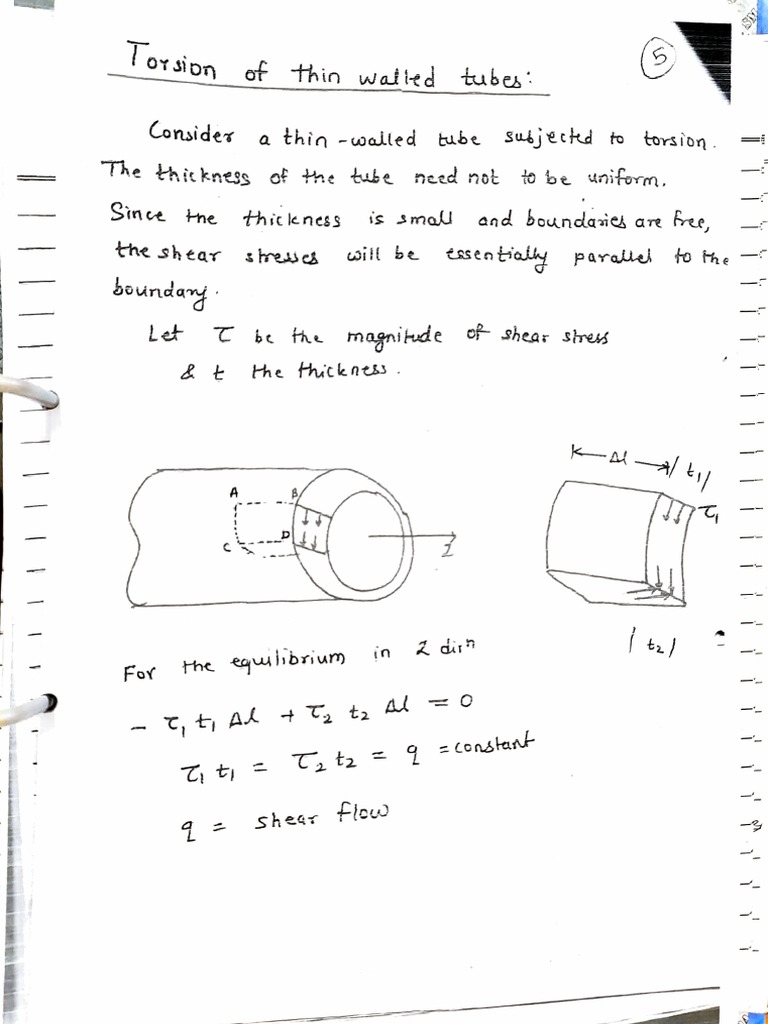 Torsion of thin walled tubes:
5
Consider a thin-walled tube subjected to torsion.
The thickness of the tube need not to be uniform.
Since the thickness is small and boundaries are free,
the shear stresses will be essentially parallel to the
boundary.
Let τ be the magnitude of shear stress
& t the thickness.
Δl
t₁
τ₁
A
B
C
D
Z
t₂
For the equilibrium in Z dirⁿ
- τ₁ t₁ Δl + τ₂ t₂ Δl = 0
τ₁ t₁ = τ₂ t₂ = q = constant
q = shear flow